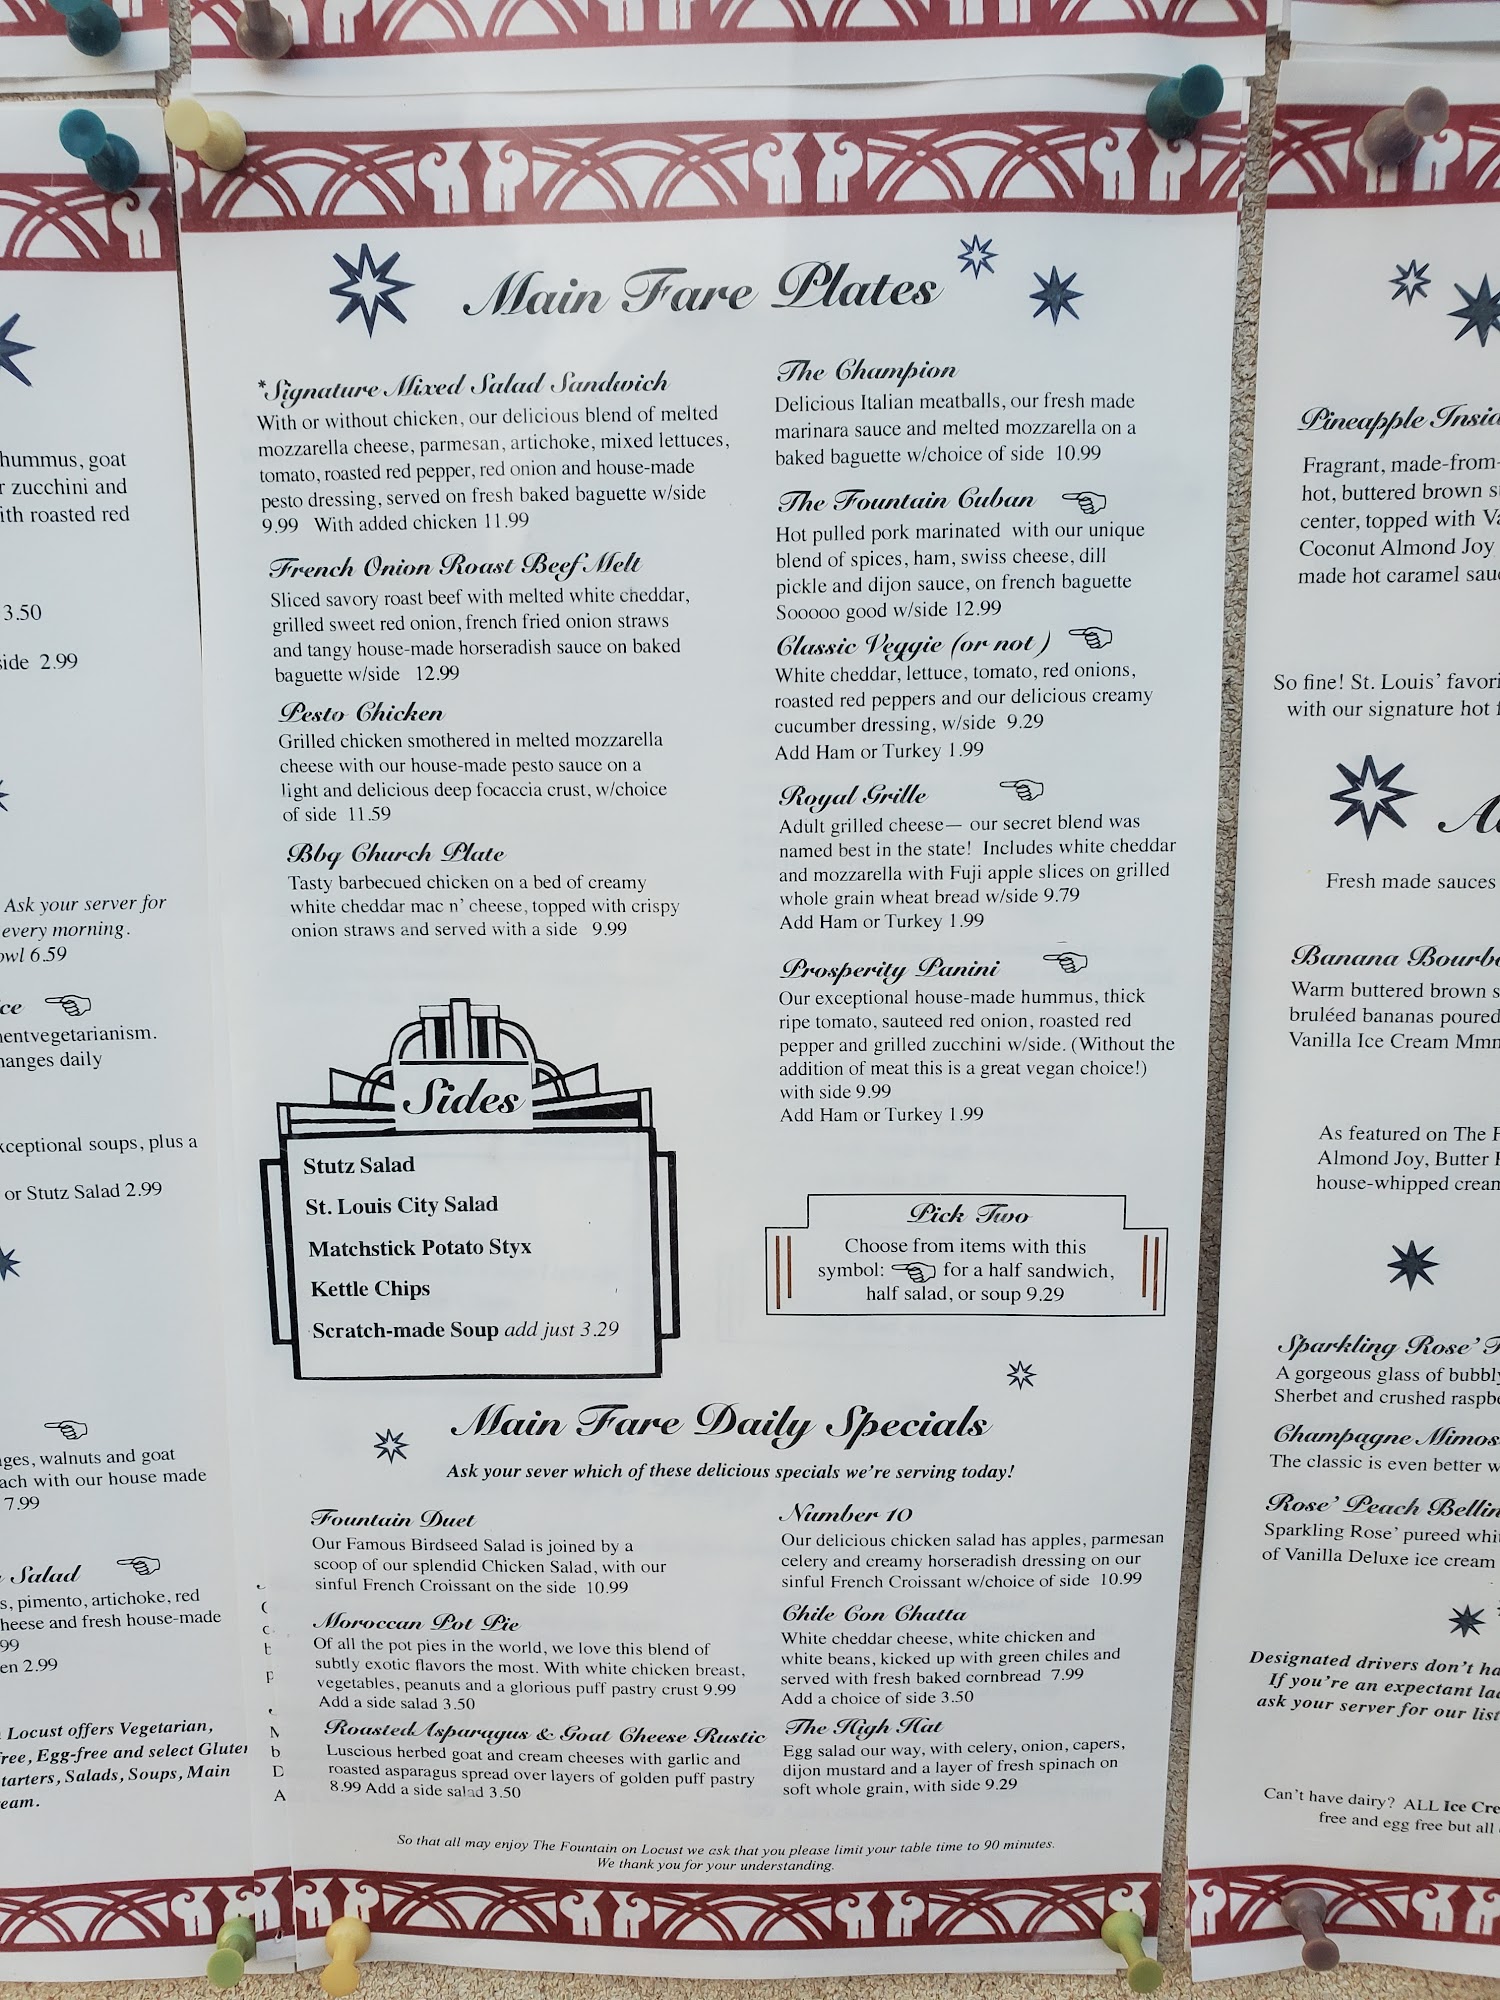 hummus, goat
zucchini and
ith roasted red
3.50
side 2.99
Ask your server for
every morning.
6.59
entvegetarianism.
hanges daily
xceptional soups, plus a
or Stutz Salad 2.99
ges, walnuts and goat
ach with our house made
7.99
Salad
s, pimento, artichoke, red
heese and fresh house-made
99
en 2.99
Locust offers Vegetarian,
ree, Egg-free and select Gluten
tarters, Salads, Soups, Main
eam.
Main Fare Plates
*Signature Mixed Salad Sandwich
With or without chicken, our delicious blend of melted
mozzarella cheese, parmesan, artichoke, mixed lettuces,
tomato, roasted red pepper, red onion and house-made
pesto dressing, served on fresh baked baguette w/side
9.99 With added chicken 11.99
French Onion Roast Beef Melt
Sliced savory roast beef with melted white cheddar,
grilled sweet red onion, french fried onion straws
and tangy house-made horseradish sauce on baked
baguette w/side 12.99
Pesto Chicken
Grilled chicken smothered in melted mozzarella
cheese with our house-made pesto sauce on a
light and delicious deep focaccia crust, w/choice
of side 11.59
Bbq Church Plate
Tasty barbecued chicken on a bed of creamy
white cheddar mac n' cheese, topped with crispy
onion straws and served with a side 9.99
Sides
Stutz Salad
St. Louis City Salad
Matchstick Potato Styx
Kettle Chips
Scratch-made Soup add just 3.29
The Champion
Delicious Italian meatballs, our fresh made
marinara sauce and melted mozzarella on a
baked baguette w/choice of side 10.99
The Fountain Cuban
Hot pulled pork marinated with our unique
blend of spices, ham, swiss cheese, dill
pickle and dijon sauce, on french baguette
Sooooo good w/side 12.99
Classic Veggie (or not )
White cheddar, lettuce, tomato, red onions,
roasted red peppers and our delicious creamy
cucumber dressing, w/side 9.29
Add Ham or Turkey 1.99
Royal Grille
Adult grilled cheese— our secret blend was
named best in the state! Includes white cheddar
and mozzarella with Fuji apple slices on grilled
whole grain wheat bread w/side 9.79
Add Ham or Turkey 1.99
Prosperity Panini
Our exceptional house-made hummus, thick
ripe tomato, sauteed red onion, roasted red
pepper and grilled zucchini w/side. (Without the
addition of meat this is a great vegan choice!)
with side 9.99
Add Ham or Turkey 1.99
Pick Two
Choose from items with this
symbol: for a half sandwich,
half salad, or soup 9.29
Main Fare Daily Specials
Ask your sever which of these delicious specials we're serving today!
Fountain Duet
Our Famous Birdseed Salad is joined by a
scoop of our splendid Chicken Salad, with our
sinful French Croissant on the side 10.99
Moroccan Pot Pie
Of all the pot pies in the world, we love this blend of
subtly exotic flavors the most. With white chicken breast,
vegetables, peanuts and a glorious puff pastry crust 9.99
Add a side salad 3.50
Roasted Asparagus & Goat Cheese Rustic
Luscious herbed goat and cream cheeses with garlic and
roasted asparagus spread over layers of golden puff pastry
8.99 Add a side salad 3.50
Number 10
Our delicious chicken salad has apples, parmesan
celery and creamy horseradish dressing on our
sinful French Croissant w/choice of side 10.99
Chile Con Chatta
White cheddar cheese, white chicken and
white beans, kicked up with green chiles and
served with fresh baked cornbread 7.99
Add a choice of side 3.50
The High Hat
Egg salad our way, with celery, onion, capers,
dijon mustard and a layer of fresh spinach on
soft whole grain, with side 9.29
So that all may enjoy The Fountain on Locust we ask that you please limit your table time to 90 minutes.
We thank you for your understanding.
Pineapple Insid
Fragrant, made-from-
hot, buttered brown s
center, topped with Va
Coconut Almond Joy
made hot caramel sau
So fine! St. Louis' favori
with our signature hot f
Fresh made sauces
Banana Bourbo
Warm buttered brown s
bruléed bananas poured
Vanilla Ice Cream Mmm
As featured on The F
Almond Joy, Butter
house-whipped cream
Sparkling Rose'
A gorgeous glass of bubbly
Sherbet and crushed raspbe
Champagne Mimos
The classic is even better w
Rose' Peach Bellin
Sparkling Rose' pureed whi
of Vanilla Deluxe ice cream
Designated drivers don't ha
If you're an expectant lad
ask your server for our list
Can't have dairy? ALL Ice Cre
free and egg free but all